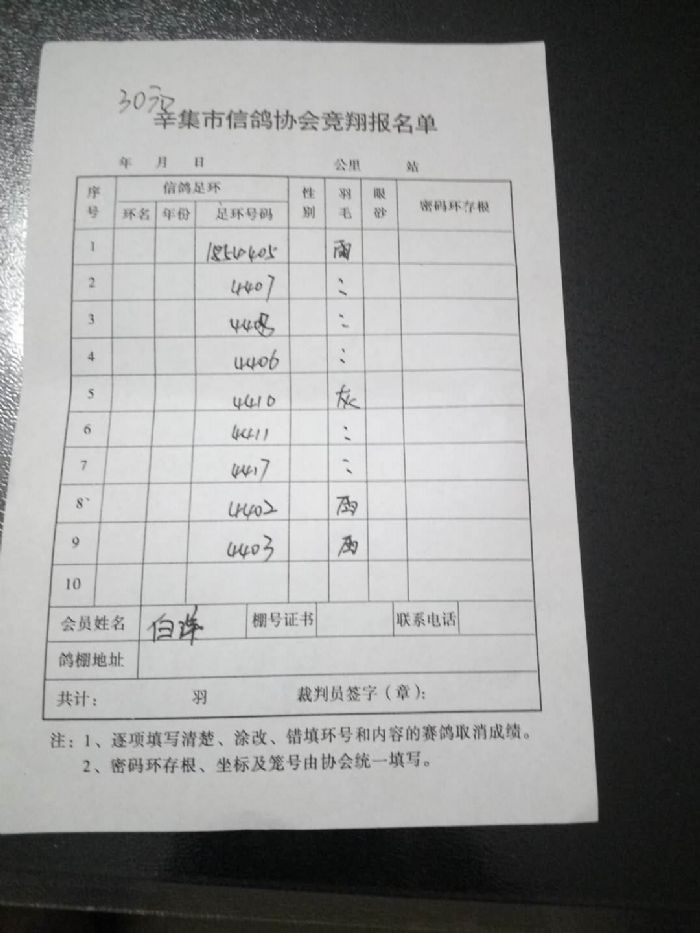 30元
辛集市信鸽协会竞翔报名单
年 月 日 公里 站
序号 信鸽足环 性别 羽毛 眼砂 密码环存根
环名 年份 足环号码
1 雨
2 4407 〃
3 〃
4 4406 〃
5 4410 灰
6 4411 〃
7 4417 〃
8 4402 雨
9 4403 雨
10
会员姓名 棚号证书 联系电话
鸽棚地址
共计: 羽 裁判员签字(章):
注:1、逐项填写清楚、涂改、错填环号和内容的赛鸽取消成绩。
2、密码环存根、坐标及笼号由协会统一填写。